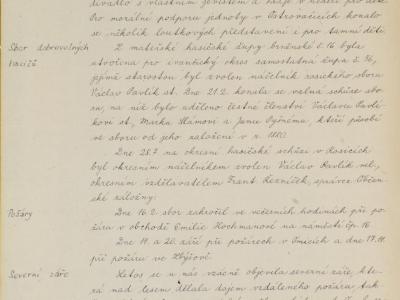 divadlo s vlastním jevištěm a hraje v neděli pro děti.
Pro morální podporu jednoty v Ostrovačicích konalo
se několik loutkových představení i pro tamní děti.
Sbor dobrovolných
hasičů
Z mateřské hasičské župy brněnské č. 16 byla
utvořena pro ivančický okres samostatná župa č. 56,
jejímž starostou byl zvolen náčelník rosického sboru
Václav Pavlík st. Dne 21.2. konala se valná schůze sbo-
ru, na níž bylo uděleno čestné členství Václavu Pavlí-
kovi st., Marku Slámovi a Janu Vyžnému, kteří působí
ve sboru od jeho založení v r. 1880.
Dne 28.7. na okresní hasičské schůzi v Rosicích
byl okresním náčelníkem zvolen Václav Pavlík ml.,
okresním vzdělavatelem Frant. Řezníček, správce Občan-
ské záložny.
Požáry
Dne 16.2. sbor zakročil ve večerních hodinách při po-
žáru v obchodě Emilie Hochmanové na náměstí čp. 16
Dne 19. a 20. září při požárech v Omicích a dne 17.11.
při požáru ve Zbýšově.
Severní záře
Letos se u nás vzácně objevila severní záře, kte-
rá nad lesem dělala dojem vzdáleného požáru, tak-